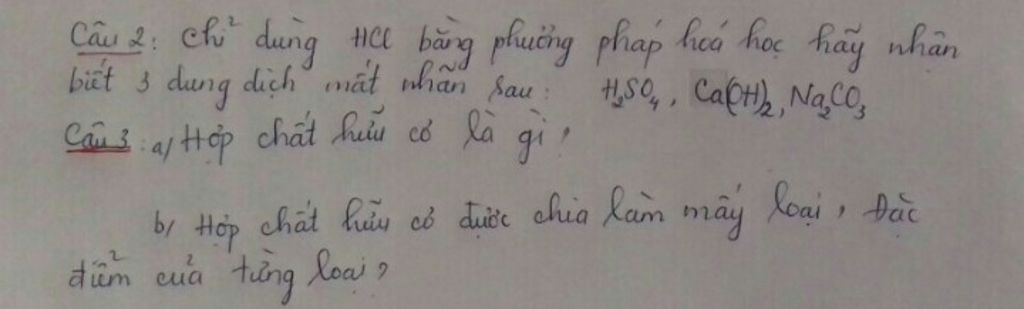 Câu 2: Chỉ dùng HCl bằng phương pháp hoá học hãy nhận
biết 3 dung dịch mất nhãn sau: H₂SO₄, Ca(OH)₂, Na₂CO₃
Câu 3: a/ Hợp chất hữu cơ là gì?
b/ Hợp chất hữu cơ được chia làm mấy loại, Đặc
điểm của từng loại?